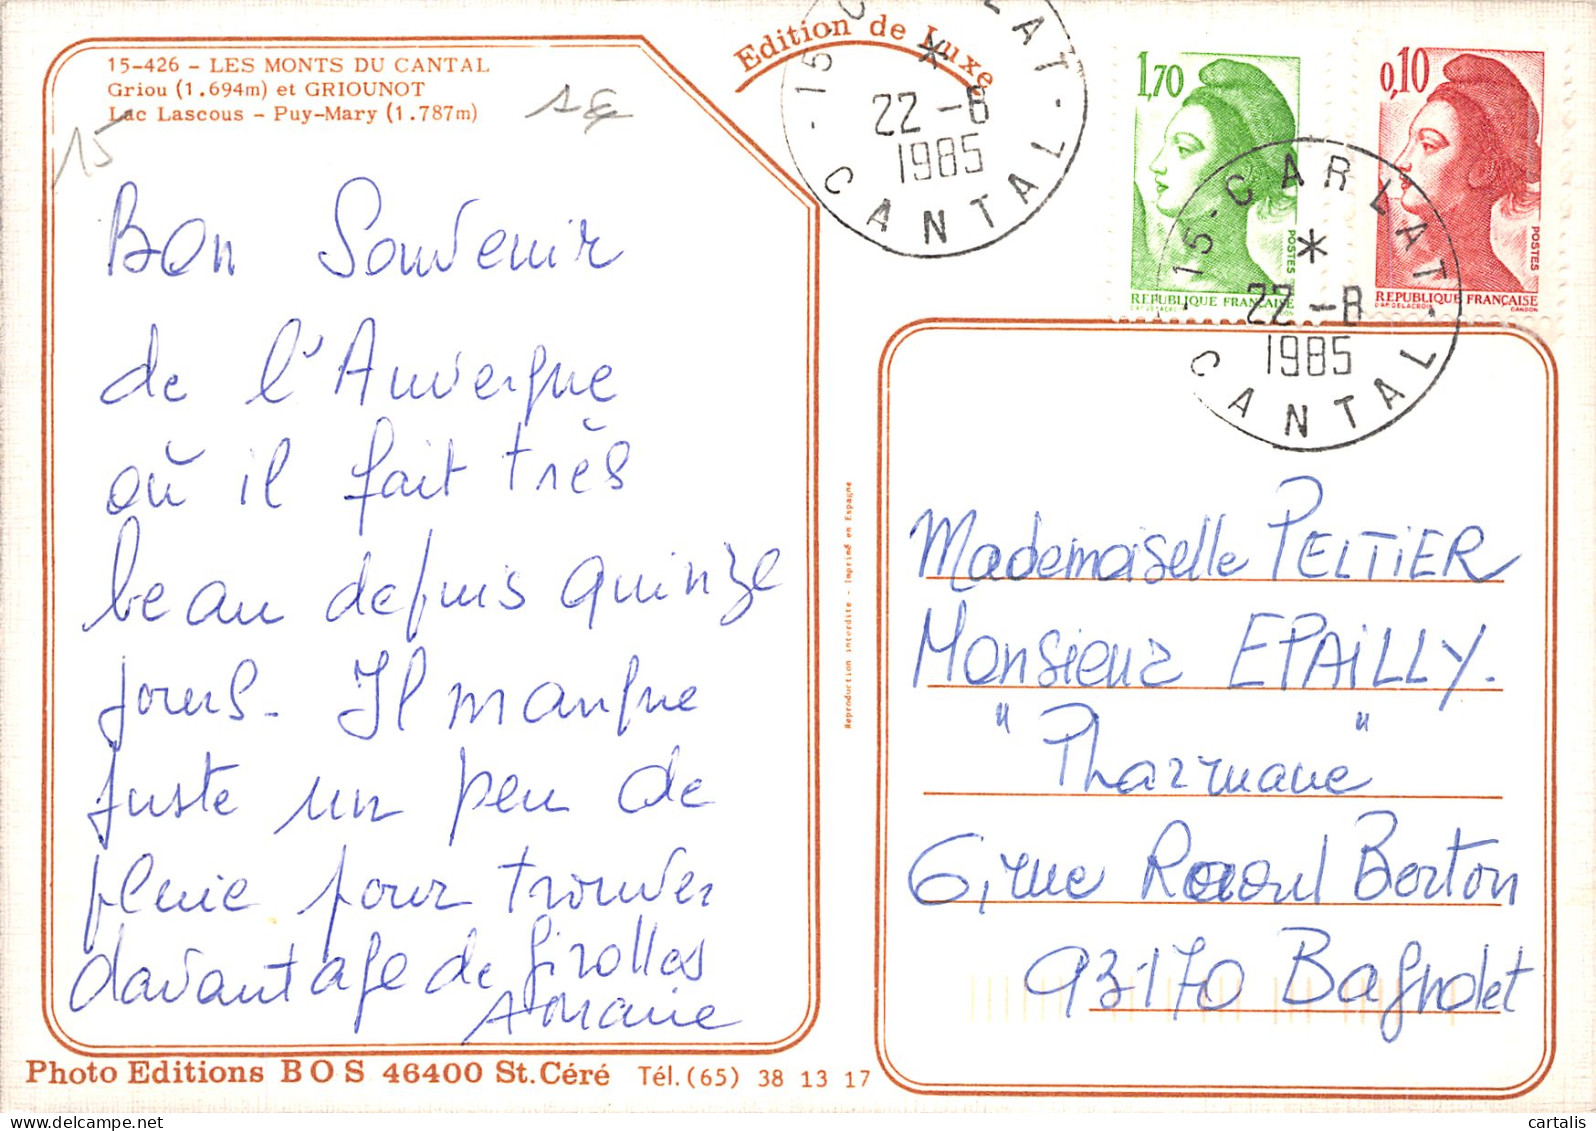 15-426 - LES MONTS DU CANTAL
Griou (1.694m) et GRIOUNOT
Lac Lascous - Puy-Mary (1.787m)
15
1€
Edition de Luxe
Bon Souvenir
de l'Auvergne
où il fait très
beau depuis quinze
jours. Il manque
juste un peu de
pluie pour trouver
davantage de girolles
Photo Editions BOS 46400 St. Céré Tél. (65) 38 13 17
Reproduction interdite - Imprimé en Espagne
15 CARLAT
22-8
1985
CANTAL
1,70
POSTES
REPUBLIQUE FRANÇAISE
0,10
POSTES
REPUBLIQUE FRANÇAISE
15-CARLAT
22-8
1985
CANTAL
Mademoiselle PELTIER
Monsieur EPAILLY.
"Pharmacie"
6, rue Raoul Berton
93170 Bagnolet
cartalis | delcampe.net